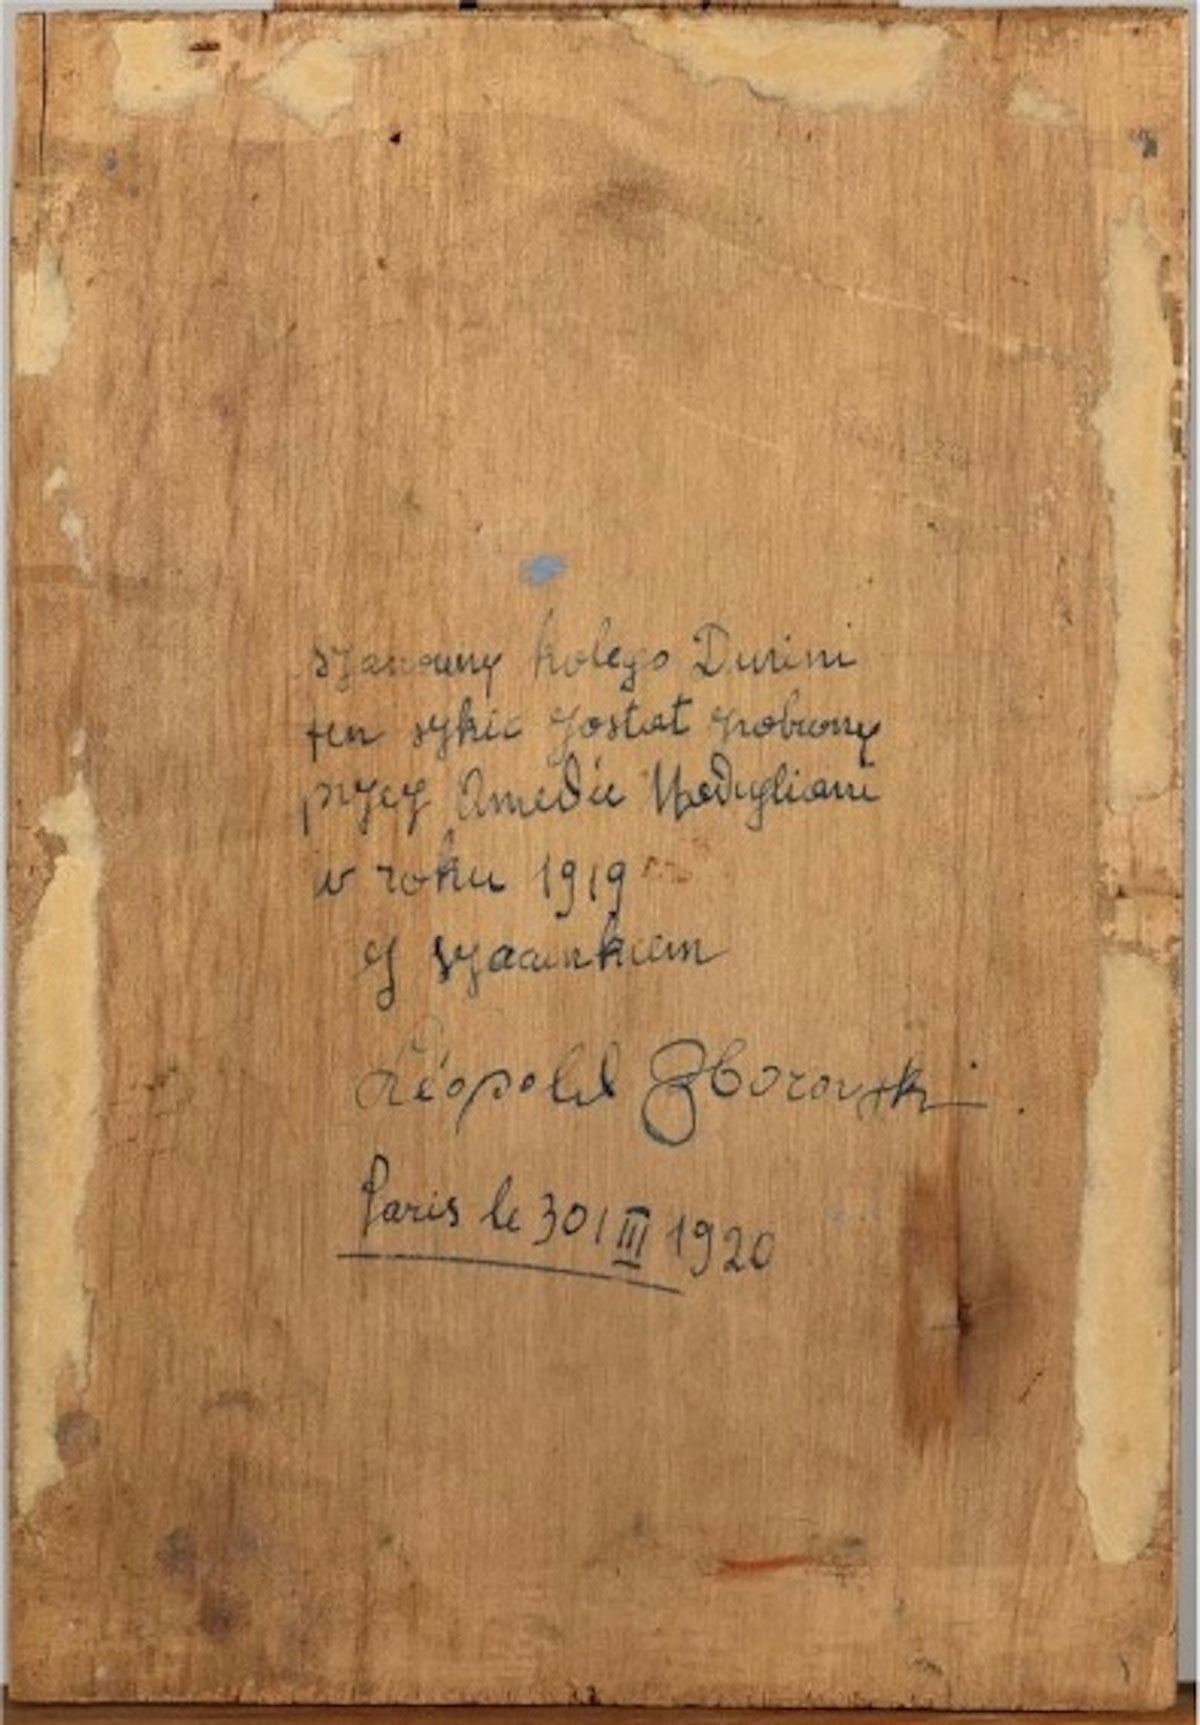 szanowny kolego Durini
ten szkic został zrobiony
przez Amedée Modigliani
w roku 1919
z szacunkiem
Léopold Zborowski.
Paris le 30 / III 1920